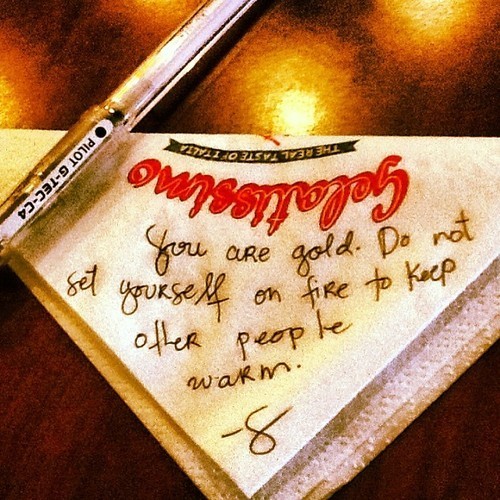 PILOT G-TEC-C4
THE REAL TASTE OF ITALIA
Gelatissimo
You are gold. Do not
set yourself on fire to keep
other people
warm.
-S